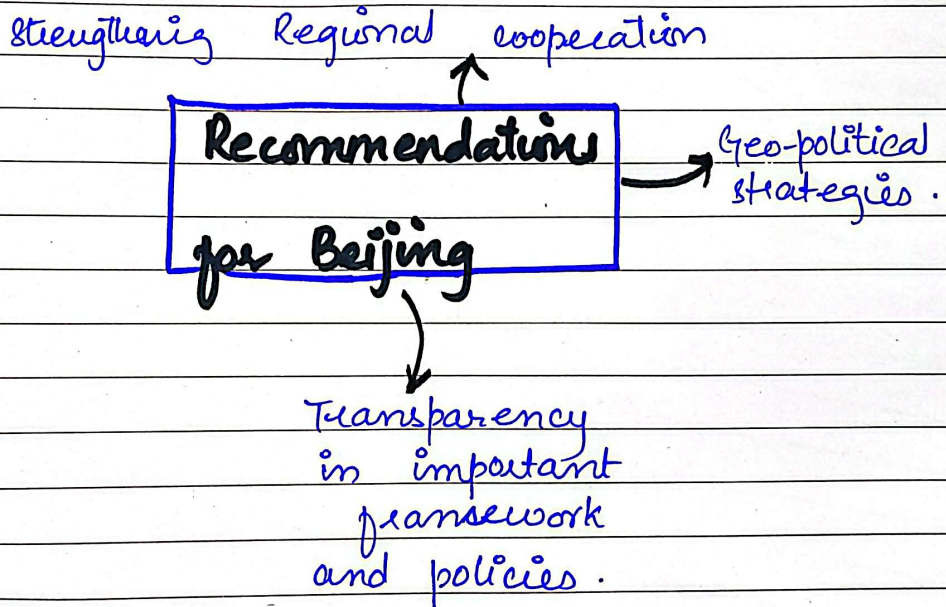 Strengthening Regional cooperation
Recommendations
for Beijing
Geo-political
strategies.
Transparency
in important
framework
and policies.